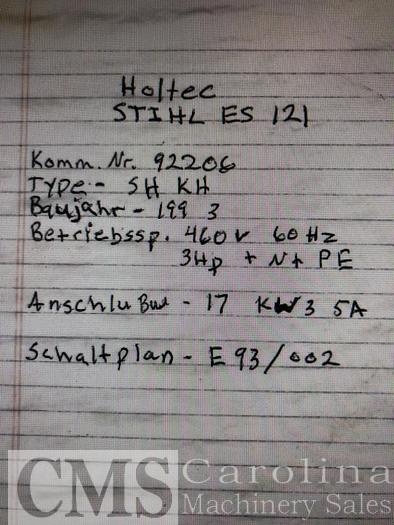 Holtec
STIHL ES 121
Komm. Nr. 92206
TYPE - SH KH
Baujahr - 199 3
Betriebssp. 460 V 60 Hz
3Hp + N+ PE
Anschlußw - 17 KW 3 5A
Schaltplan - E 93/002
CMS Carolina
Machinery Sales